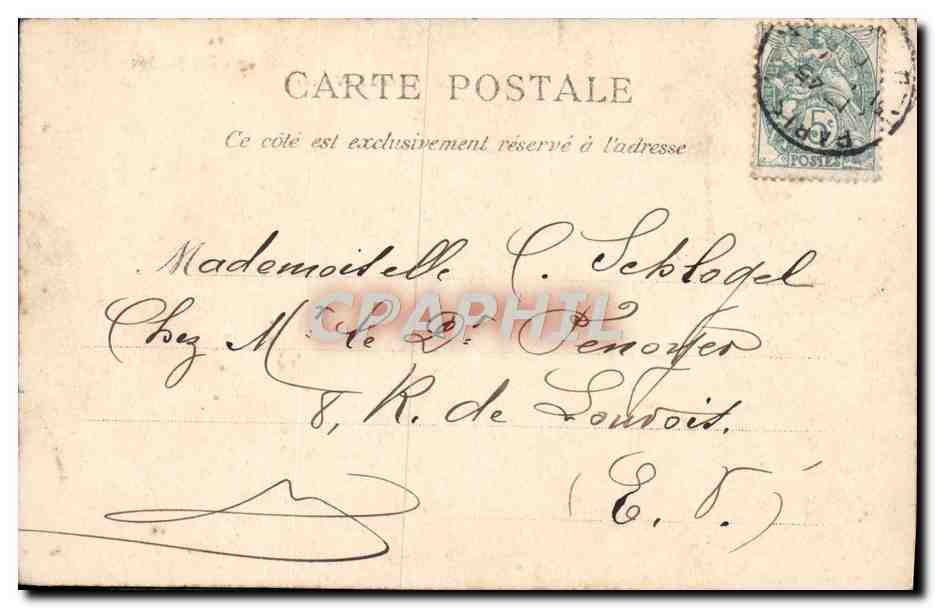 CARTE POSTALE
Ce côté est exclusivement réservé à l'adresse
PARIS
5c
POSTES
Mademoiselle C. Schlogel
CPAPHIL
Chez Mr le Dr Penoyer
8, R. de Louvois.
(E. V.)